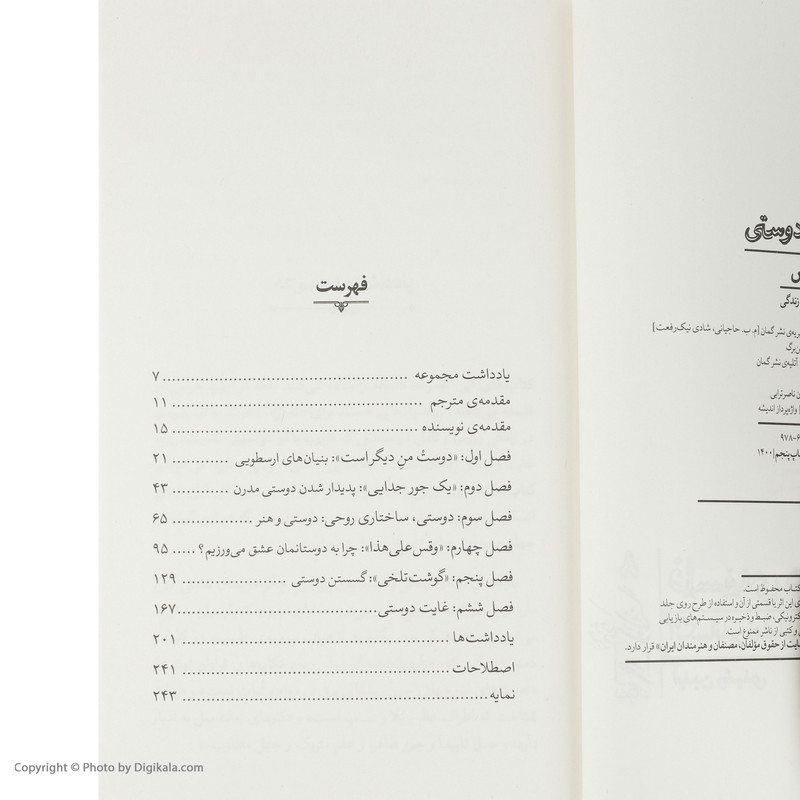 دوستی
زندگی
نشر گمان [م. ب. حاجیانی، شادی نیک‌رفعت]
آتلیه‌ی نشر گمان
ناصر ترابی
واژه‌پرداز اندیشه
۹۷۸-۶
پنجم/۱۴۰۰
کتاب محفوظ است.
این اثر یا قسمتی از آن و استفاده از طرح روی جلد
ضبط و ذخیره در سیستم‌های بازیابی
و کتبی از ناشر ممنوع است.
از حقوق مؤلفان، مصنفان و هنرمندان ایران» قرار دارد.
فهرست
یادداشت مجموعه ........ ۷
مقدمه‌ی مترجم ........ ۱۱
مقدمه‌ی نویسنده ........ ۱۵
فصل اول: «دوستْ منِ دیگر است»: بنیان‌های ارسطویی ........ ۲۱
فصل دوم: «یک جور جدایی»: پدیدار شدن دوستی مدرن ........ ۴۳
فصل سوم: دوستی، ساختاری روحی: دوستی و هنر ........ ۶۵
فصل چهارم: «وقس‌علی‌هذا»: چرا به دوستانمان عشق می‌ورزیم؟ ..... ۹۵
فصل پنجم: «گوشت‌تلخی»: گسستن دوستی ........ ۱۲۹
فصل ششم: غایت دوستی ........ ۱۶۷
یادداشت‌ها ........ ۲۰۱
اصطلاحات ........ ۲۴۱
نمایه ........ ۲۴۳
Copyright © Photo by Digikala.com